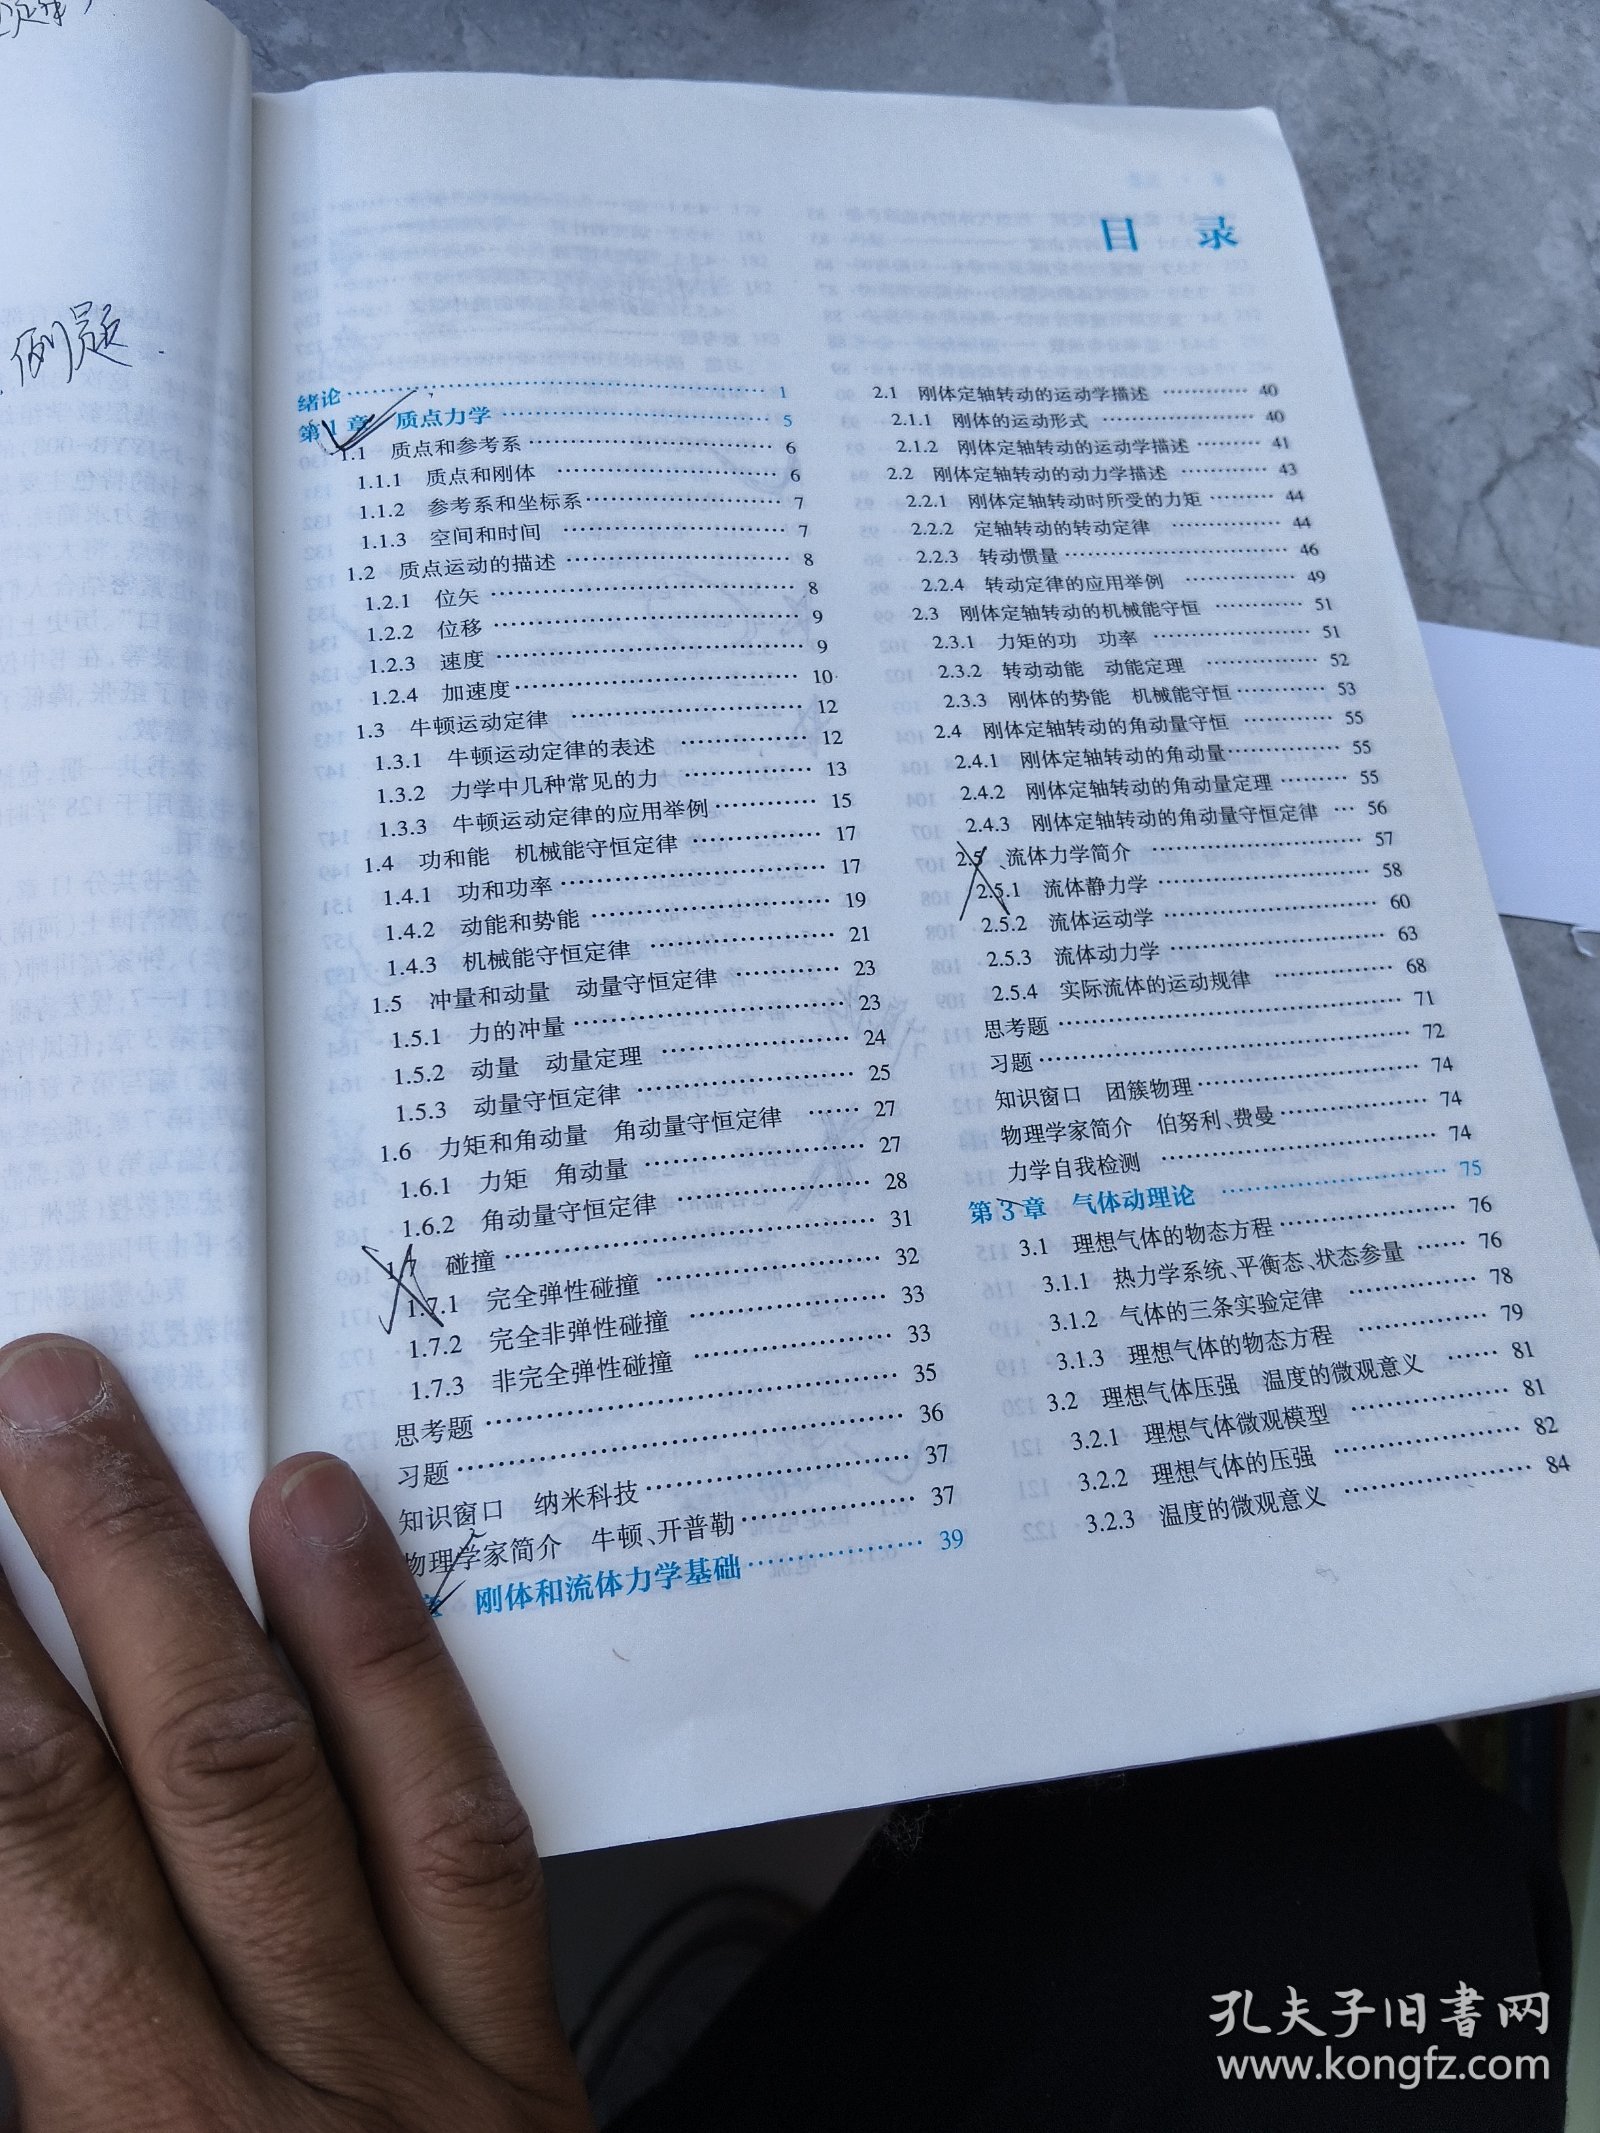 例题.
目 录
绪论……1
第1章 质点力学……5
1.1 质点和参考系……6
1.1.1 质点和刚体……6
1.1.2 参考系和坐标系……7
1.1.3 空间和时间……7
1.2 质点运动的描述……8
1.2.1 位矢……8
1.2.2 位移……9
1.2.3 速度……9
1.2.4 加速度……10
1.3 牛顿运动定律……12
1.3.1 牛顿运动定律的表述……12
1.3.2 力学中几种常见的力……13
1.3.3 牛顿运动定律的应用举例……15
1.4 功和能 机械能守恒定律……17
1.4.1 功和功率……17
1.4.2 动能和势能……19
1.4.3 机械能守恒定律……21
1.5 冲量和动量 动量守恒定律……23
1.5.1 力的冲量……23
1.5.2 动量 动量定理……24
1.5.3 动量守恒定律……25
1.6 力矩和角动量 角动量守恒定律……27
1.6.1 力矩 角动量……27
1.6.2 角动量守恒定律……28
1.7 碰撞……31
1.7.1 完全弹性碰撞……32
1.7.2 完全非弹性碰撞……33
1.7.3 非完全弹性碰撞……33
思考题……35
习题……36
知识窗口 纳米科技……37
物理学家简介 牛顿、开普勒……37
章 刚体和流体力学基础……39
2.1 刚体定轴转动的运动学描述……40
2.1.1 刚体的运动形式……40
2.1.2 刚体定轴转动的运动学描述……41
2.2 刚体定轴转动的动力学描述……43
2.2.1 刚体定轴转动时所受的力矩……44
2.2.2 定轴转动的转动定律……44
2.2.3 转动惯量……46
2.2.4 转动定律的应用举例……49
2.3 刚体定轴转动的机械能守恒……51
2.3.1 力矩的功 功率……51
2.3.2 转动动能 动能定理……52
2.3.3 刚体的势能 机械能守恒……53
2.4 刚体定轴转动的角动量守恒……55
2.4.1 刚体定轴转动的角动量……55
2.4.2 刚体定轴转动的角动量定理……55
2.4.3 刚体定轴转动的角动量守恒定律……56
2.5 流体力学简介……57
2.5.1 流体静力学……58
2.5.2 流体运动学……60
2.5.3 流体动力学……63
2.5.4 实际流体的运动规律……68
思考题……71
习题……72
知识窗口 团簇物理……74
物理学家简介 伯努利、费曼……74
力学自我检测……74
第3章 气体动理论……75
3.1 理想气体的物态方程……76
3.1.1 热力学系统、平衡态、状态参量……76
3.1.2 气体的三条实验定律……78
3.1.3 理想气体的物态方程……79
3.2 理想气体压强 温度的微观意义……81
3.2.1 理想气体微观模型……81
3.2.2 理想气体的压强……82
3.2.3 温度的微观意义……84
孔夫子旧书网
www.kongfz.com